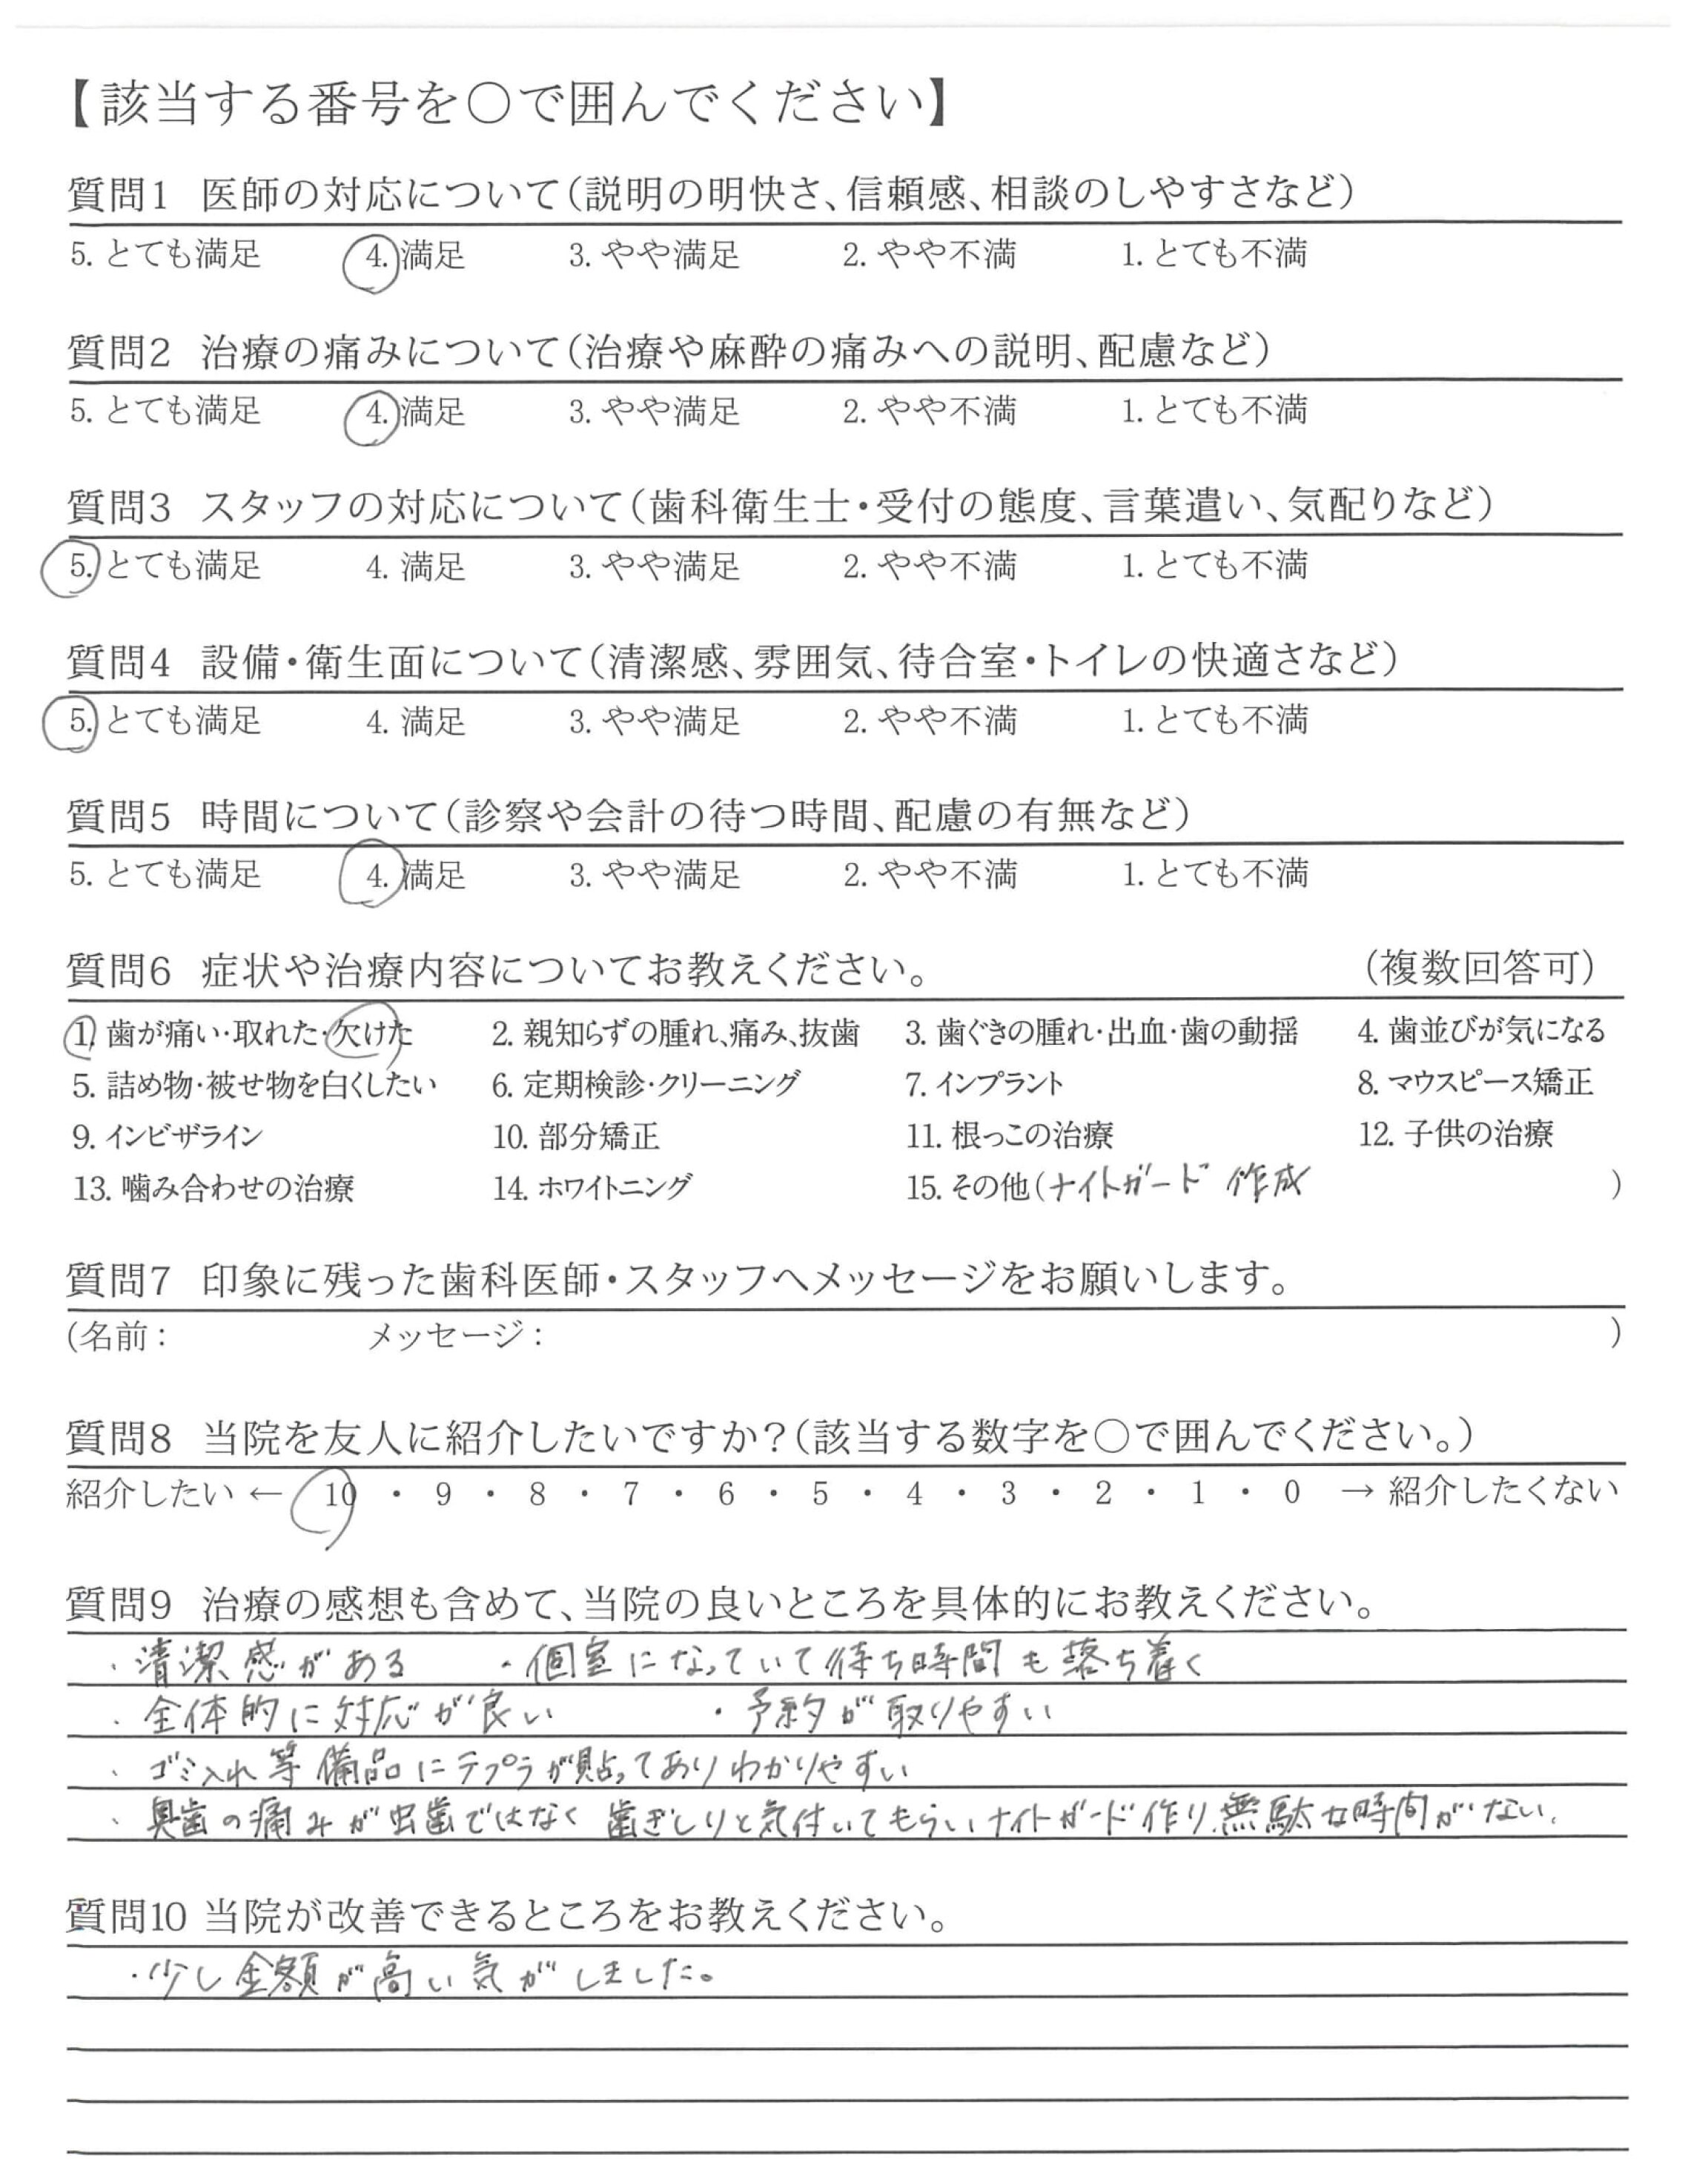 【該当する番号を〇で囲んでください】
質問1 医師の対応について(説明の明快さ、信頼感、相談のしやすさなど)
5. とても満足 4. 満足 3. やや満足 2. やや不満 1. とても不満
質問2 治療の痛みについて(治療や麻酔の痛みへの説明、配慮など)
5. とても満足 4. 満足 3. やや満足 2. やや不満 1. とても不満
質問3 スタッフの対応について(歯科衛生士・受付の態度、言葉遣い、気配りなど)
5. とても満足 4. 満足 3. やや満足 2. やや不満 1. とても不満
質問4 設備・衛生面について(清潔感、雰囲気、待合室・トイレの快適さなど)
5. とても満足 4. 満足 3. やや満足 2. やや不満 1. とても不満
質問5 時間について(診察や会計の待つ時間、配慮の有無など)
5. とても満足 4. 満足 3. やや満足 2. やや不満 1. とても不満
質問6 症状や治療内容についてお教えください。 (複数回答可)
1. 歯が痛い・取れた・欠けた 2. 親知らずの腫れ、痛み、抜歯 3. 歯ぐきの腫れ・出血・歯の動揺 4. 歯並びが気になる
5. 詰め物・被せ物を白くしたい 6. 定期検診・クリーニング 7. インプラント 8. マウスピース矯正
9. インビザライン 10. 部分矯正 11. 根っこの治療 12. 子供の治療
13. 噛み合わせの治療 14. ホワイトニング 15. その他(ナイトガード 作成 )
質問7 印象に残った歯科医師・スタッフへメッセージをお願いします。
(名前: メッセージ: )
質問8 当院を友人に紹介したいですか?(該当する数字を〇で囲んでください。)
紹介したい ← 10 ・ 9 ・ 8 ・ 7 ・ 6 ・ 5 ・ 4 ・ 3 ・ 2 ・ 1 ・ 0 → 紹介したくない
質問9 治療の感想も含めて、当院の良いところを具体的にお教えください。
・清潔感がある ・個室になっていて待ち時間も落ち着く
・全体的に対応が良い ・予約が取りやすい
・ゴミ入れ等備品にテプラが貼ってありわかりやすい
・奥歯の痛みが虫歯ではなく歯ぎしりと気付いてもらいナイトガード作り、無駄な時間がない。
質問10 当院が改善できるところをお教えください。
・少し金額が高い気がしました。